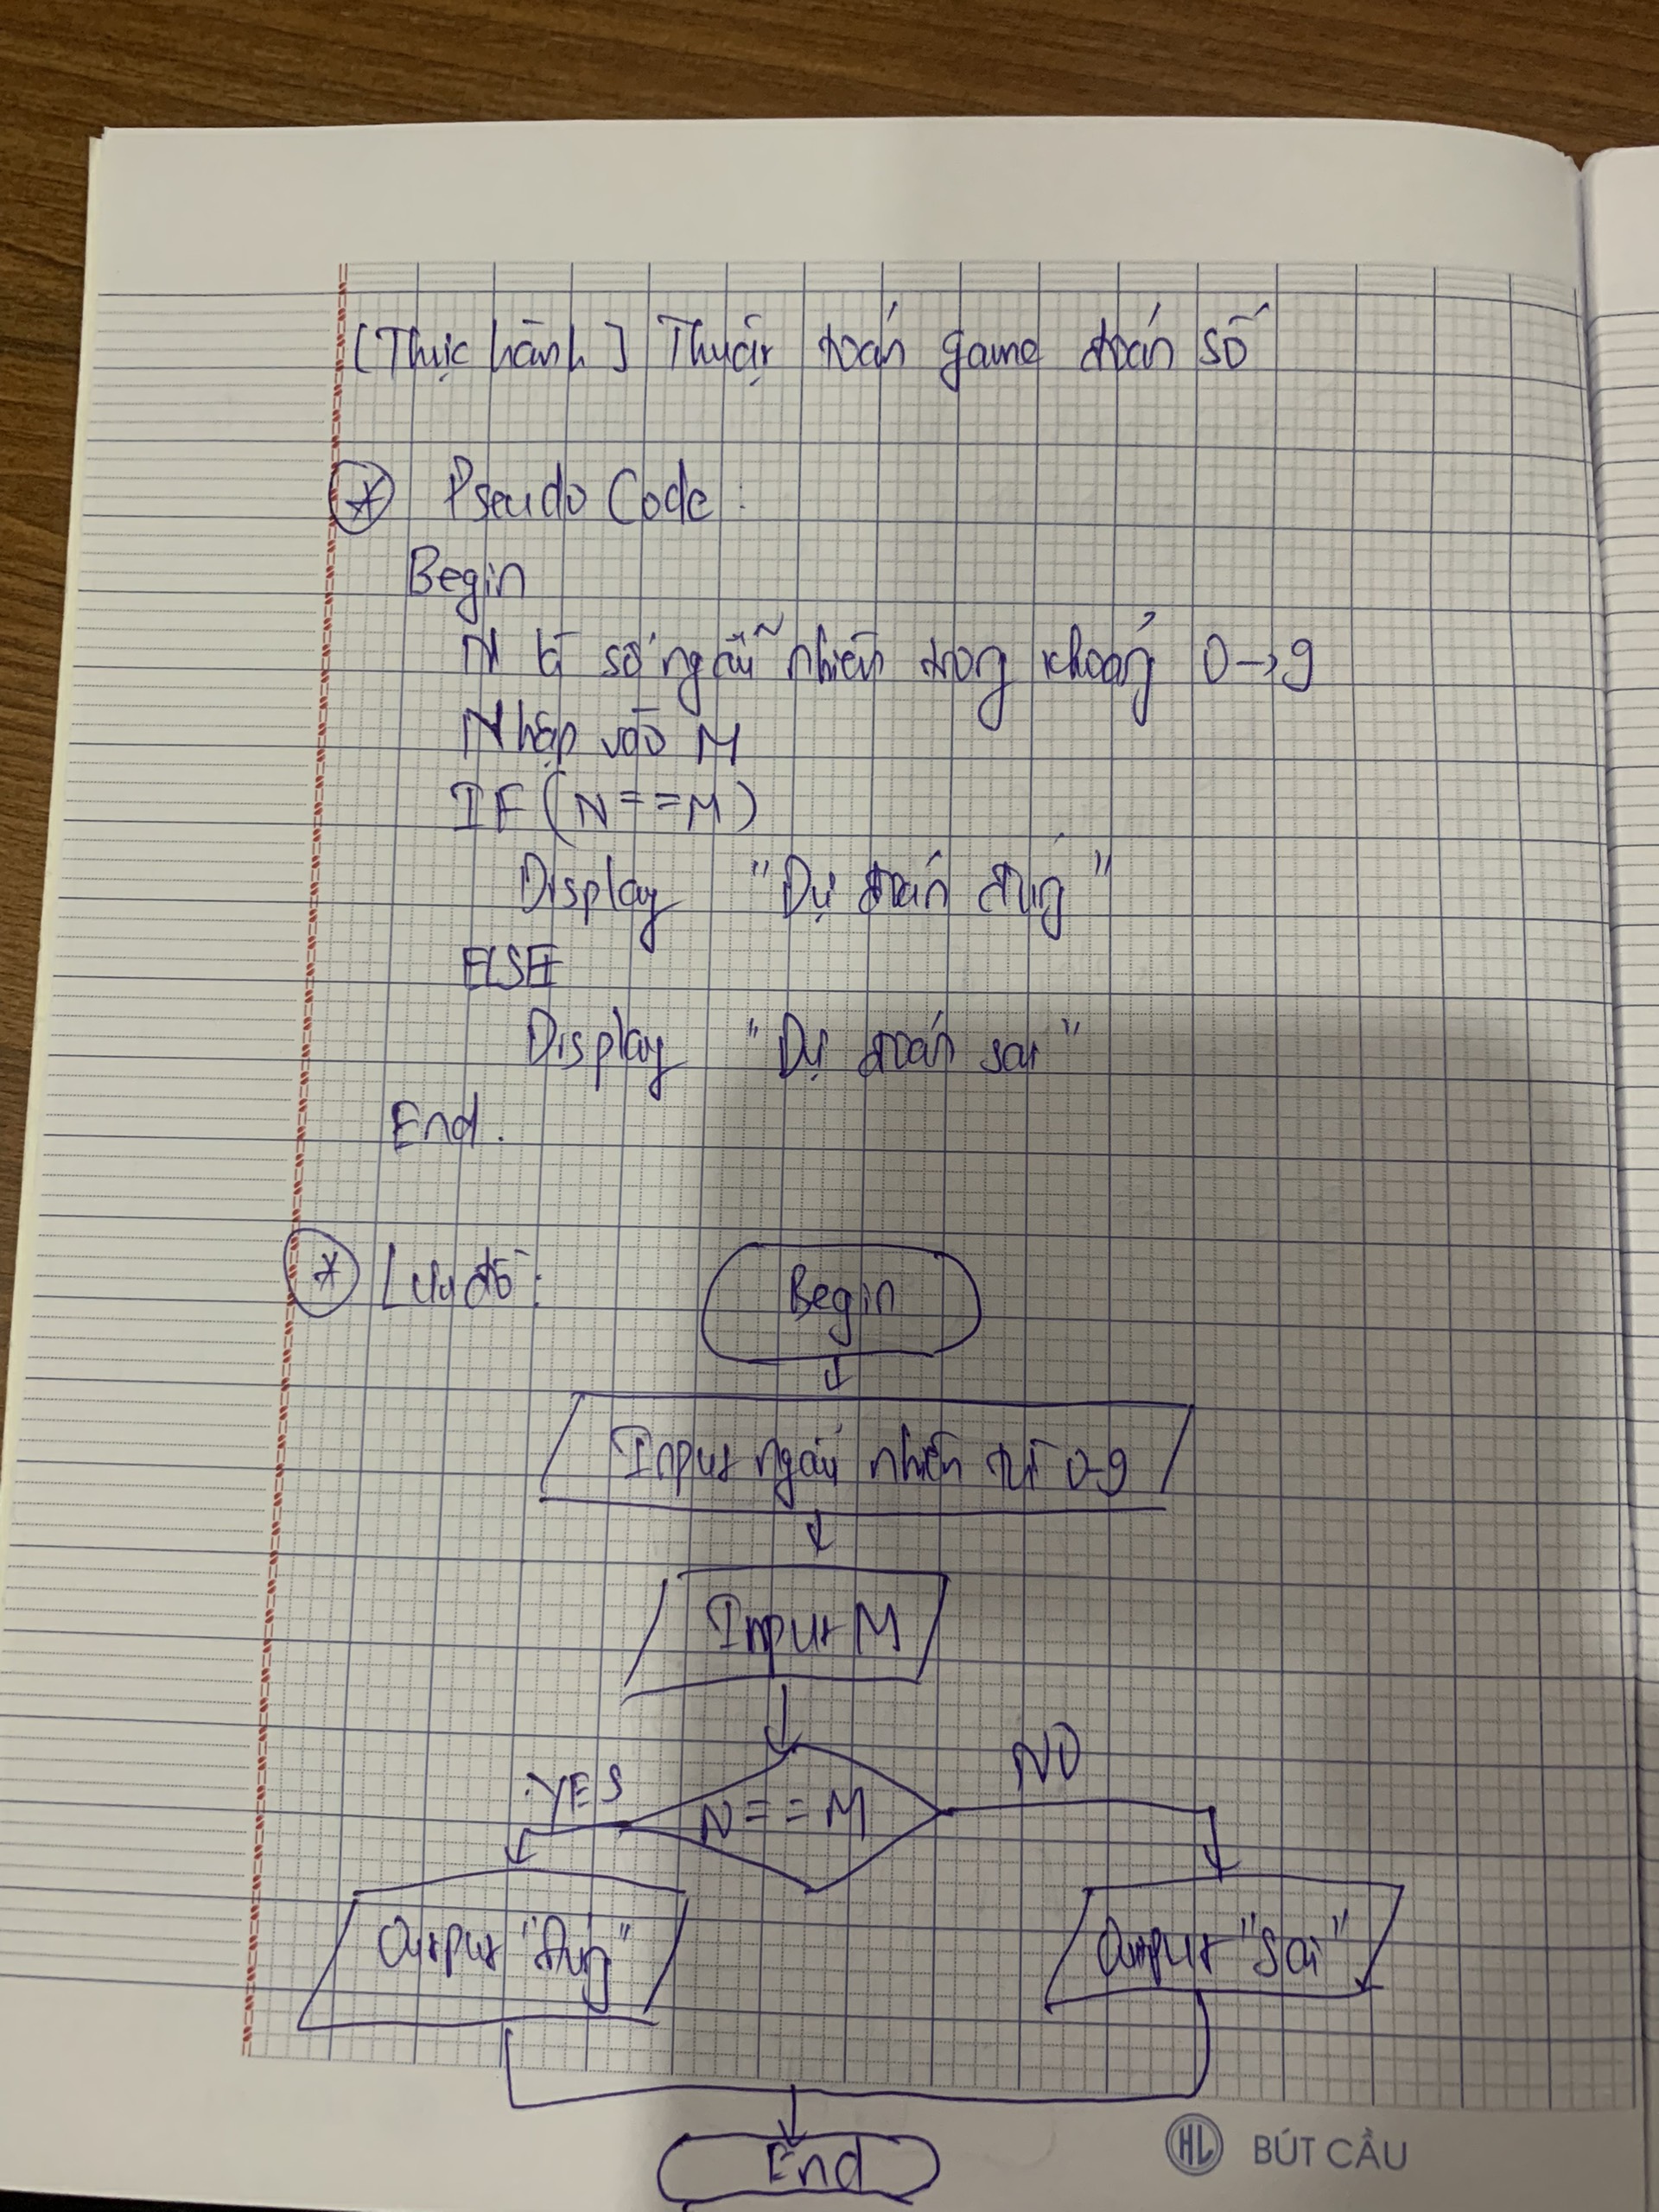 [Thực hành] Thuật toán game đoán số
* Pseudo Code:
Begin
N là số ngẫu nhiên trong khoảng 0→9
Nhập vào M
IF (N==M)
Display "Dự đoán đúng"
ELSE
Display "Dự đoán sai"
End.
* Lưu đồ:
Begin
Input ngẫu nhiên từ 0-9
Input M
YES
N==M
NO
Output "Đúng"
Output "Sai"
End
HL BÚT CẦU